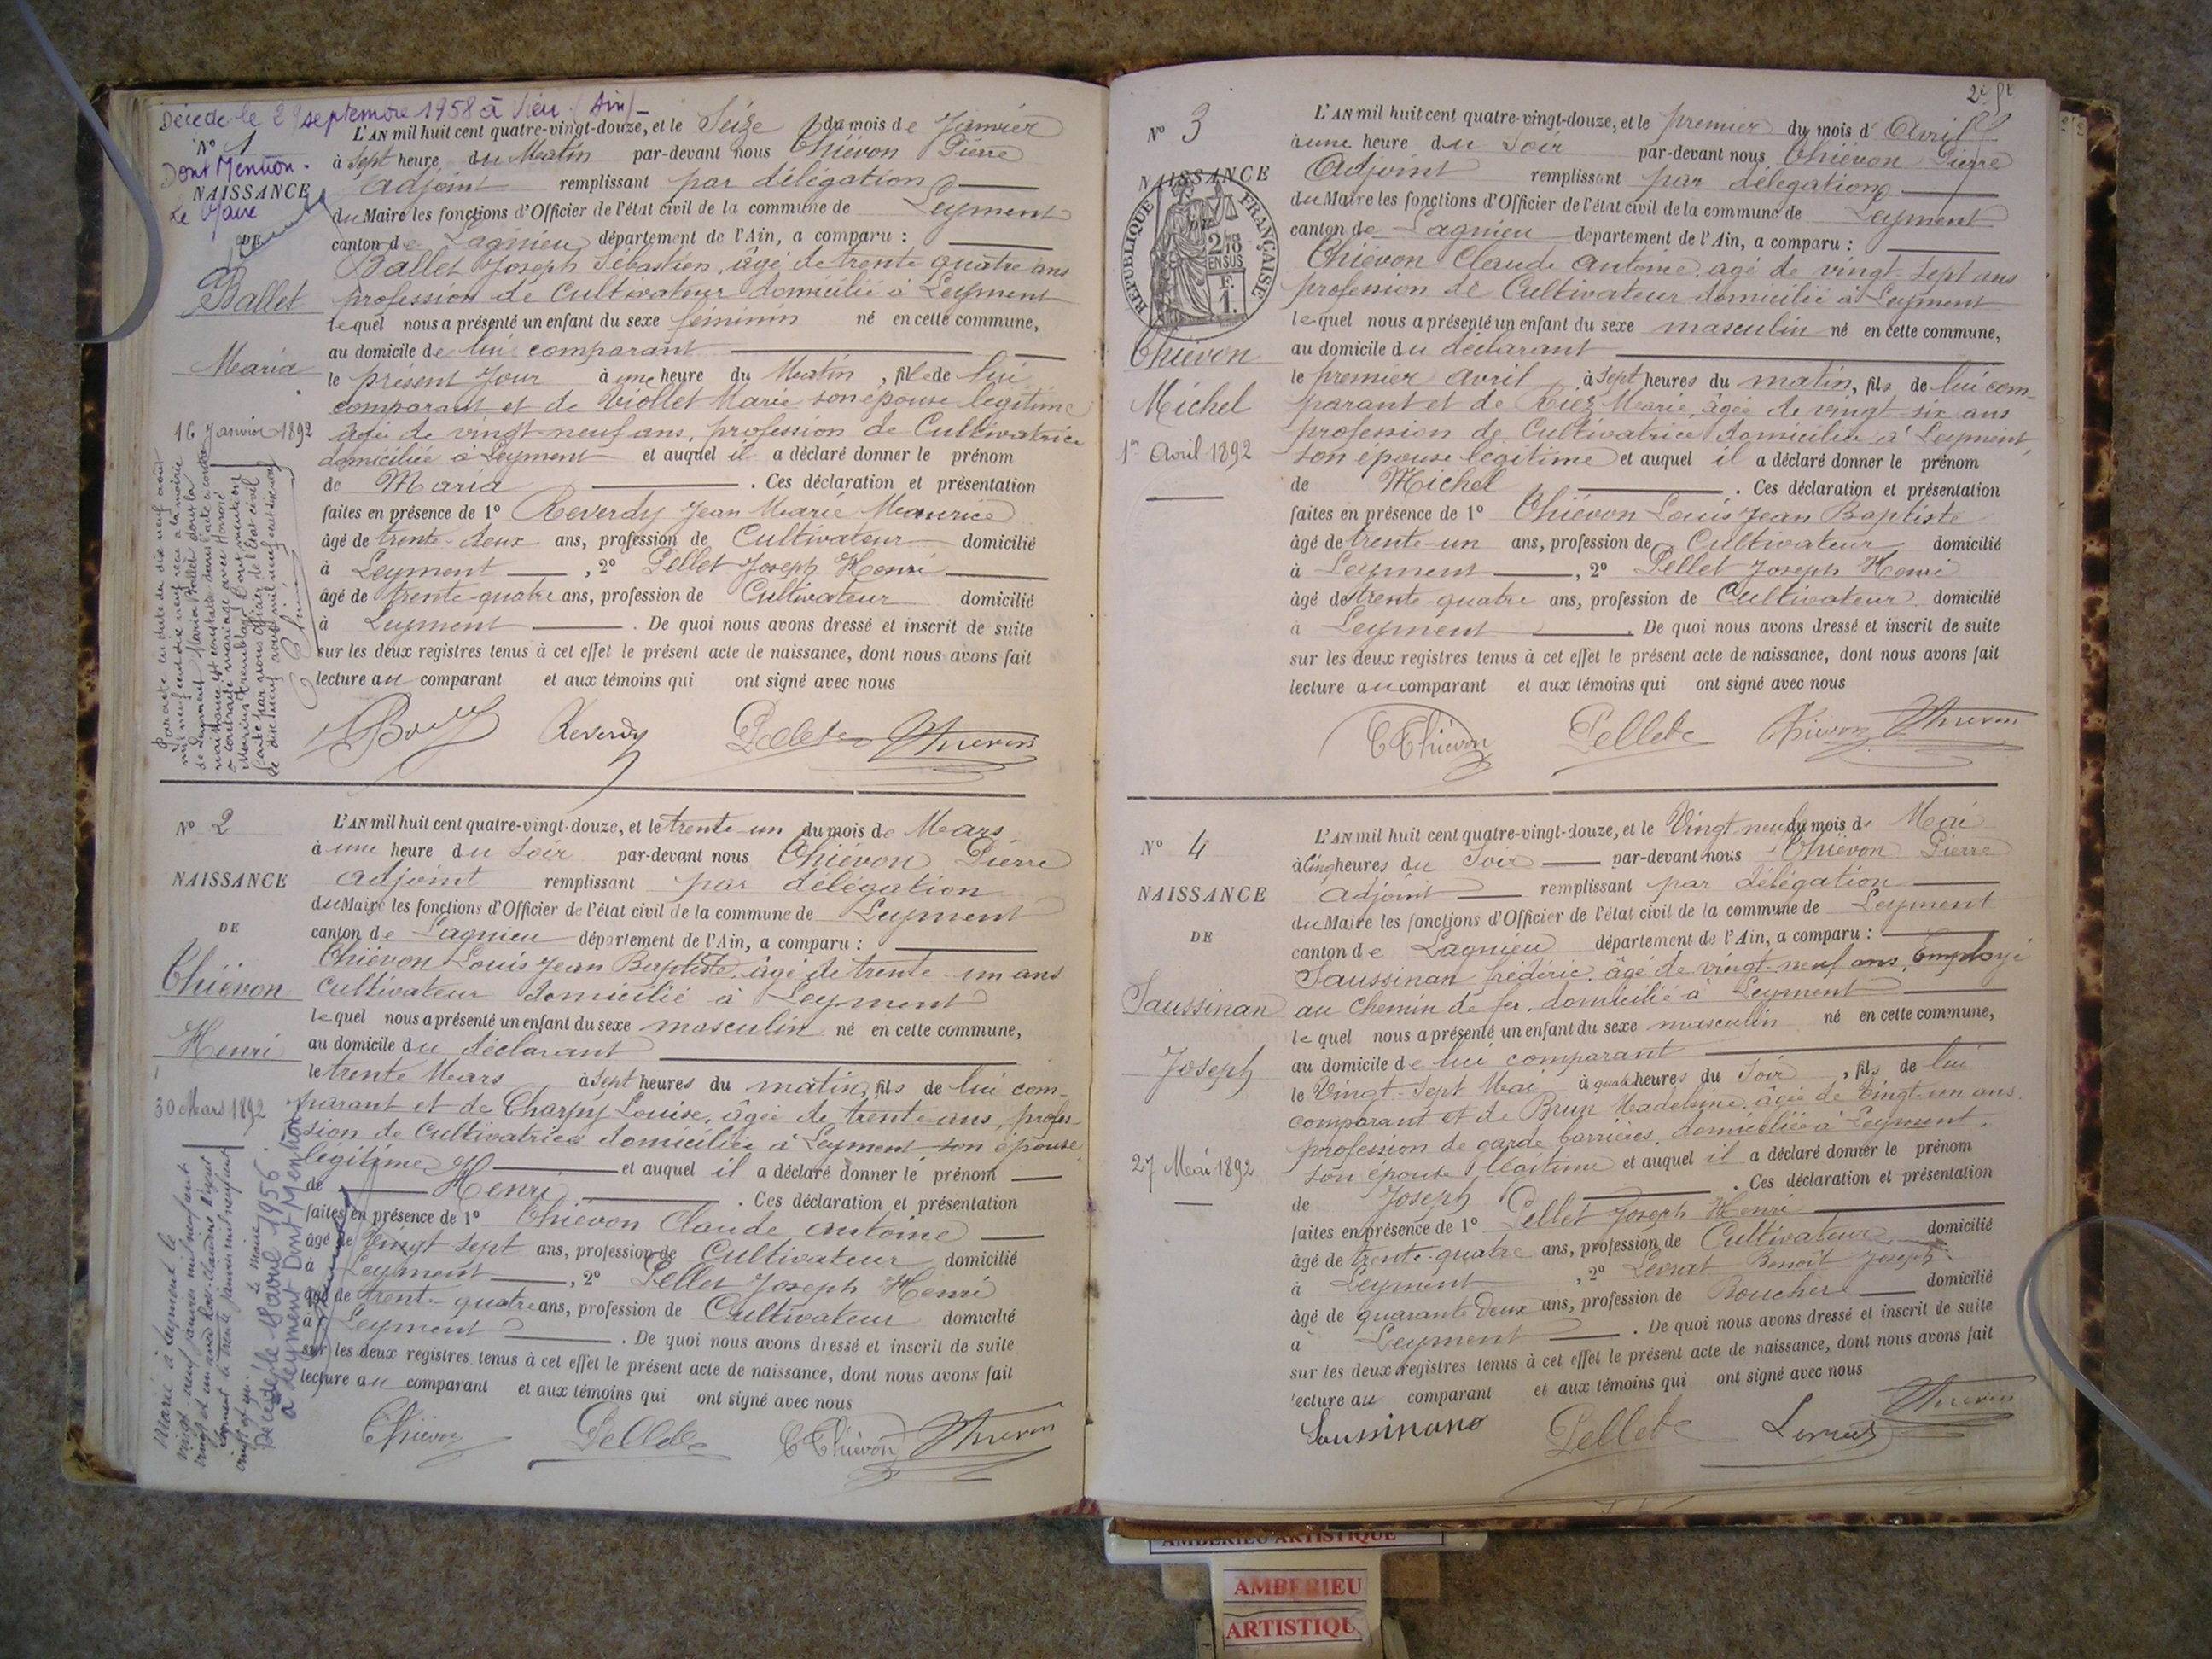 Décédé le 29 septembre 1958 à Vieu (Ain) -
N° 1
Dont Mention.
NAISSANCE
Le Maire
DE
Ballet
Maria
16 Janvier 1892
L'AN mil huit cent quatre-vingt-douze, et le Seize du mois de Janvier
à Sept heure du Matin par-devant nous Thiévon Pierre
adjoint remplissant par délégation
du Maire les fonctions d'Officier de l'état civil de la commune de Leyment
canton de Lagnieu département de l'Ain, a comparu :
Ballet Joseph Sébastien, âgé de trente quatre ans
profession de Cultivateur domicilié à Leyment
lequel nous a présenté un enfant du sexe feminin né en cette commune,
au domicile de lui comparant
le présent jour à une heure du Matin, fille de lui
comparant et de Viollet Marie son épouse légitime
âgée de vingt-neuf ans, profession de Cultivatrice
domiciliée à Leyment et auquel il a déclaré donner le prénom
de Maria . Ces déclaration et présentation
faites en présence de 1° Reverdy Jean Marie Maurice
âgé de trente-deux ans, profession de Cultivateur domicilié
à Leyment , 2° Pellet Joseph Henri
âgé de trente-quatre ans, profession de Cultivateur domicilié
à Leyment . De quoi nous avons dressé et inscrit de suite
sur les deux registres tenus à cet effet le présent acte de naissance, dont nous avons fait
lecture au comparant et aux témoins qui ont signé avec nous
Reverdy Pellet Thievon
Par acte en date du dix neuf août
mil neuf cent dix neuf reçu à la mairie
de Leyment Maria Ballet dont la
naissance est constatée dans l'acte ci contre
a contracté mariage avec Honoré
Marius Tremblay. Dont mention
faite par nous officier de l'Etat civil
N° 2
NAISSANCE
DE
Thiévon
Henri
30 Mars 1892
L'AN mil huit cent quatre-vingt-douze, et le trente-un du mois de Mars
à une heure du soir par-devant nous Thiévon Pierre
adjoint remplissant par délégation
du Maire les fonctions d'Officier de l'état civil de la commune de Leyment
canton de Lagnieu département de l'Ain, a comparu :
Thiévon Louis Jean Baptiste âgé de trente-un ans
cultivateur domicilié à Leyment
lequel nous a présenté un enfant du sexe masculin né en cette commune,
au domicile du déclarant
le trente Mars à Sept heures du matin, fils de lui com-
parant et de Charpy Louise, âgée de trente ans, profes-
sion de Cultivatrice domiciliée à Leyment son épouse
légitime et auquel il a déclaré donner le prénom
de Henri . Ces déclaration et présentation
faites en présence de 1° Thiévon Claude Antoine
âgé de Vingt Sept ans, profession de Cultivateur domicilié
à Leyment , 2° Pellet Joseph Henri
âgé de trente-quatre ans, profession de Cultivateur domicilié
à Leyment . De quoi nous avons dressé et inscrit de suite
sur les deux registres tenus à cet effet le présent acte de naissance, dont nous avons fait
lecture au comparant et aux témoins qui ont signé avec nous
Thievon Pellet C Thievon Thievon
Marié à Leyment le
Décédé le 1 avril 1956
à Leyment Dont Mention
Le Maire
2e
N° 3
NAISSANCE
DE
REPUBLIQUE FRANÇAISE
2/10 EN SUS
F. 1.
Thiévon
Michel
1er Avril 1892
L'AN mil huit cent quatre-vingt-douze, et le premier du mois d'Avril
à une heure du Soir par-devant nous Thiévon Pierre
Adjoint remplissant par délégation
du Maire les fonctions d'Officier de l'état civil de la commune de Leyment
canton de Lagnieu département de l'Ain, a comparu :
Thiévon Claude Antoine, âgé de vingt-sept ans
profession de Cultivateur domicilié à Leyment
lequel nous a présenté un enfant du sexe masculin né en cette commune,
au domicile du déclarant
le premier avril à Sept heures du matin, fils de lui com-
parant et de Riez Marie, âgée de vingt-six ans
profession de Cultivatrice domiciliée à Leyment
son épouse légitime et auquel il a déclaré donner le prénom
de Michel . Ces déclaration et présentation
faites en présence de 1° Thiévon Louis Jean Baptiste
âgé de trente-un ans, profession de Cultivateur domicilié
à Leyment , 2° Pellet Joseph Henri
âgé de trente-quatre ans, profession de Cultivateur domicilié
à Leyment . De quoi nous avons dressé et inscrit de suite
sur les deux registres tenus à cet effet le présent acte de naissance, dont nous avons fait
lecture au comparant et aux témoins qui ont signé avec nous
C Thievon Pellet Thievon Thievon
N° 4
NAISSANCE
DE
Saussinan
Joseph
27 Mai 1892
L'AN mil huit cent quatre-vingt-douze, et le Vingt neuf du mois de Mai
à Cinq heures du Soir par-devant nous Thiévon Pierre
adjoint remplissant par délégation
du Maire les fonctions d'Officier de l'état civil de la commune de Leyment
canton de Lagnieu département de l'Ain, a comparu :
Saussinan frédéric, âgé de vingt-neuf ans, Employé
au Chemin de fer, domicilié à Leyment
lequel nous a présenté un enfant du sexe masculin né en cette commune,
au domicile de lui comparant
le Vingt-Sept Mai à quatre heures du Soir, fils de lui
comparant et de Brun Madeleine, âgée de Vingt-un ans,
profession de garde barrières, domiciliée à Leyment,
son épouse légitime et auquel il a déclaré donner le prénom
de Joseph . Ces déclaration et présentation
faites en présence de 1° Pellet Joseph Henri
âgé de trente-quatre ans, profession de Cultivateur domicilié
à Leyment , 2° Levrat Benoît Joseph
âgé de quarante deux ans, profession de Boucher domicilié
à Leyment . De quoi nous avons dressé et inscrit de suite
sur les deux registres tenus à cet effet le présent acte de naissance, dont nous avons fait
lecture au comparant et aux témoins qui ont signé avec nous
Pellet Levrat Thievon
AMBERIEU ARTISTIQUE
AMBERIEU
ARTISTIQU